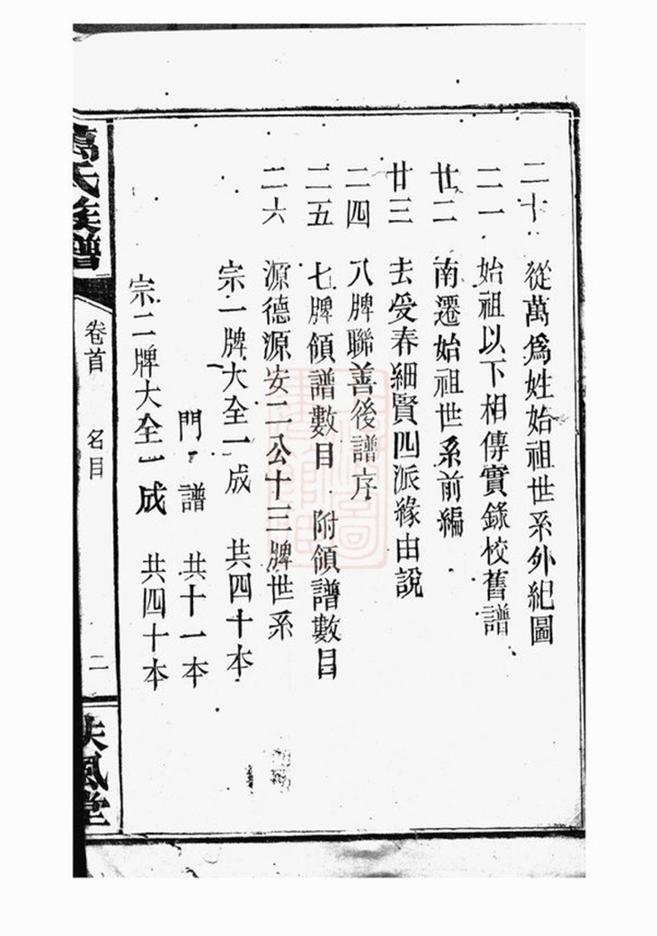 二十 從萬爲姓始祖世系外紀圖
二一 始祖以下相傳實錄校舊譜
廿二 南遷始祖世系前編
廿三 去受春細賢四派緣由說
二四 八牌聯善後譜序
二五 七牌領譜數目 附領譜數目
二六 源德源安二公十三牌世系
宗一牌大全一成 共四十本
門譜 共十一本
宗二牌大全一成 共四十本
萬氏族譜
卷首 名目
二
扶風堂